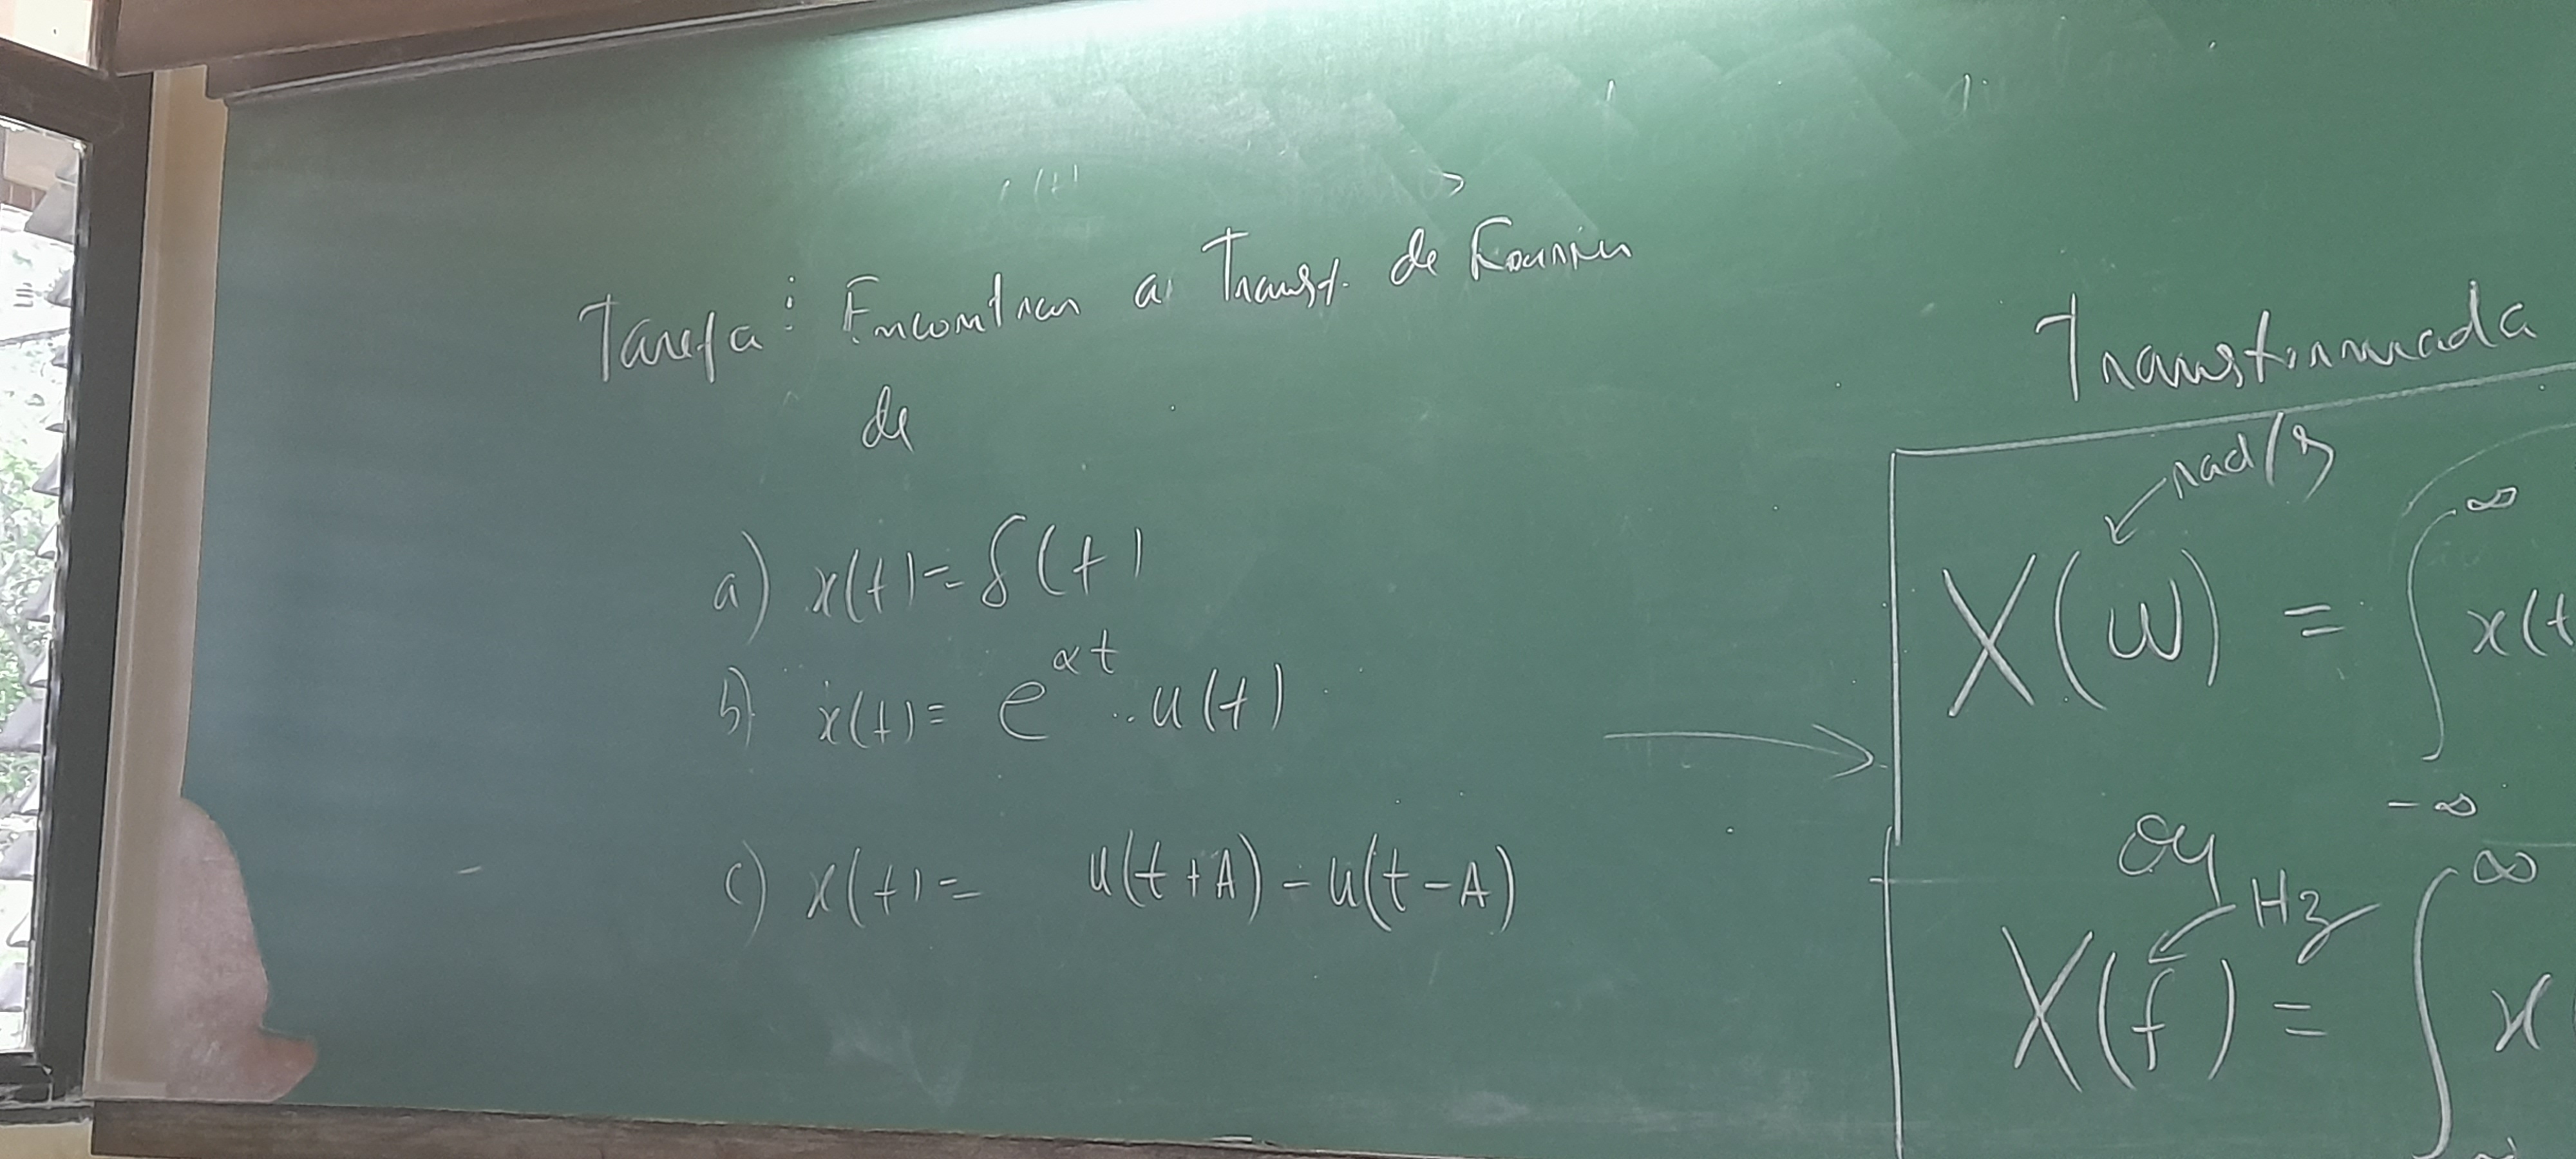 Tarefa: Encontrar a Transf. de Fourier
de
a) x(t) = δ(t)
b) x(t) = e^{αt} . u(t)
c) x(t) = u(t+A) - u(t-A)
Transformada
rad/s
X(w) = ∫_{-∞}^{∞} x(t
ou
Hz
X(f) = ∫^{∞} x